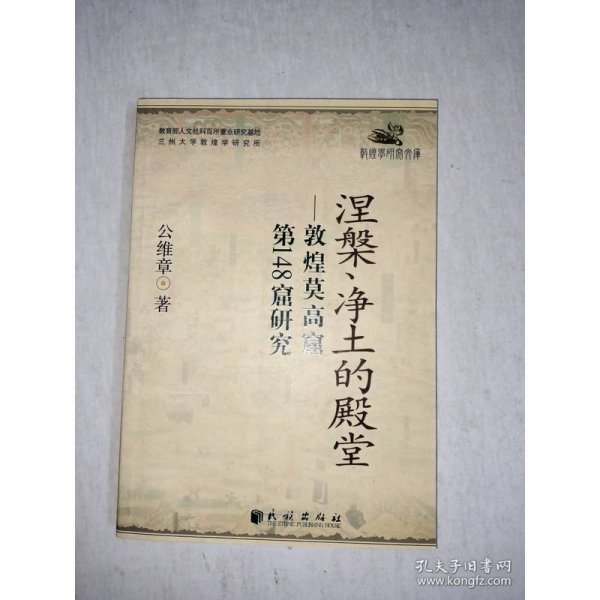 教育部人文社科百所重点研究基地
兰州大学敦煌学研究所
敦煌学研究文库
涅槃、净土的殿堂
—敦煌莫高窟
第148窟研究
公维章 著
民族出版社
THE ETHNIC PUBLISHING HOUSE
孔夫子旧书网
www.kongfz.com